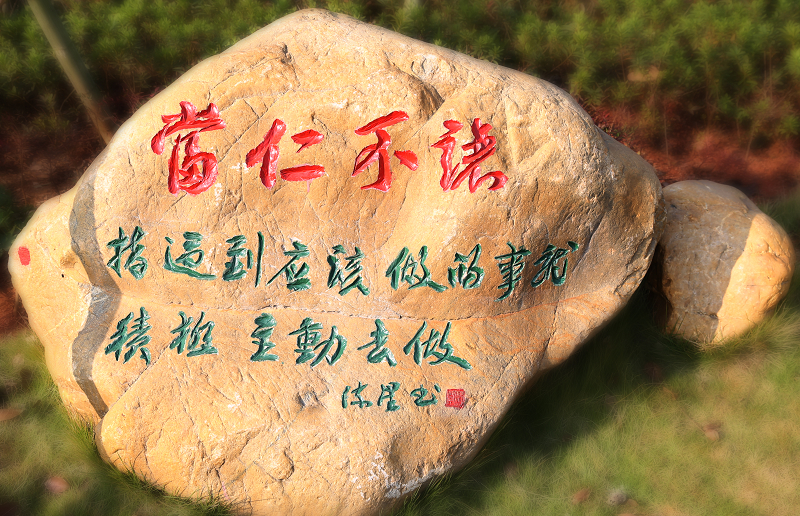 當仁不讓
指遇到应该做的事就
積極主動去做
书